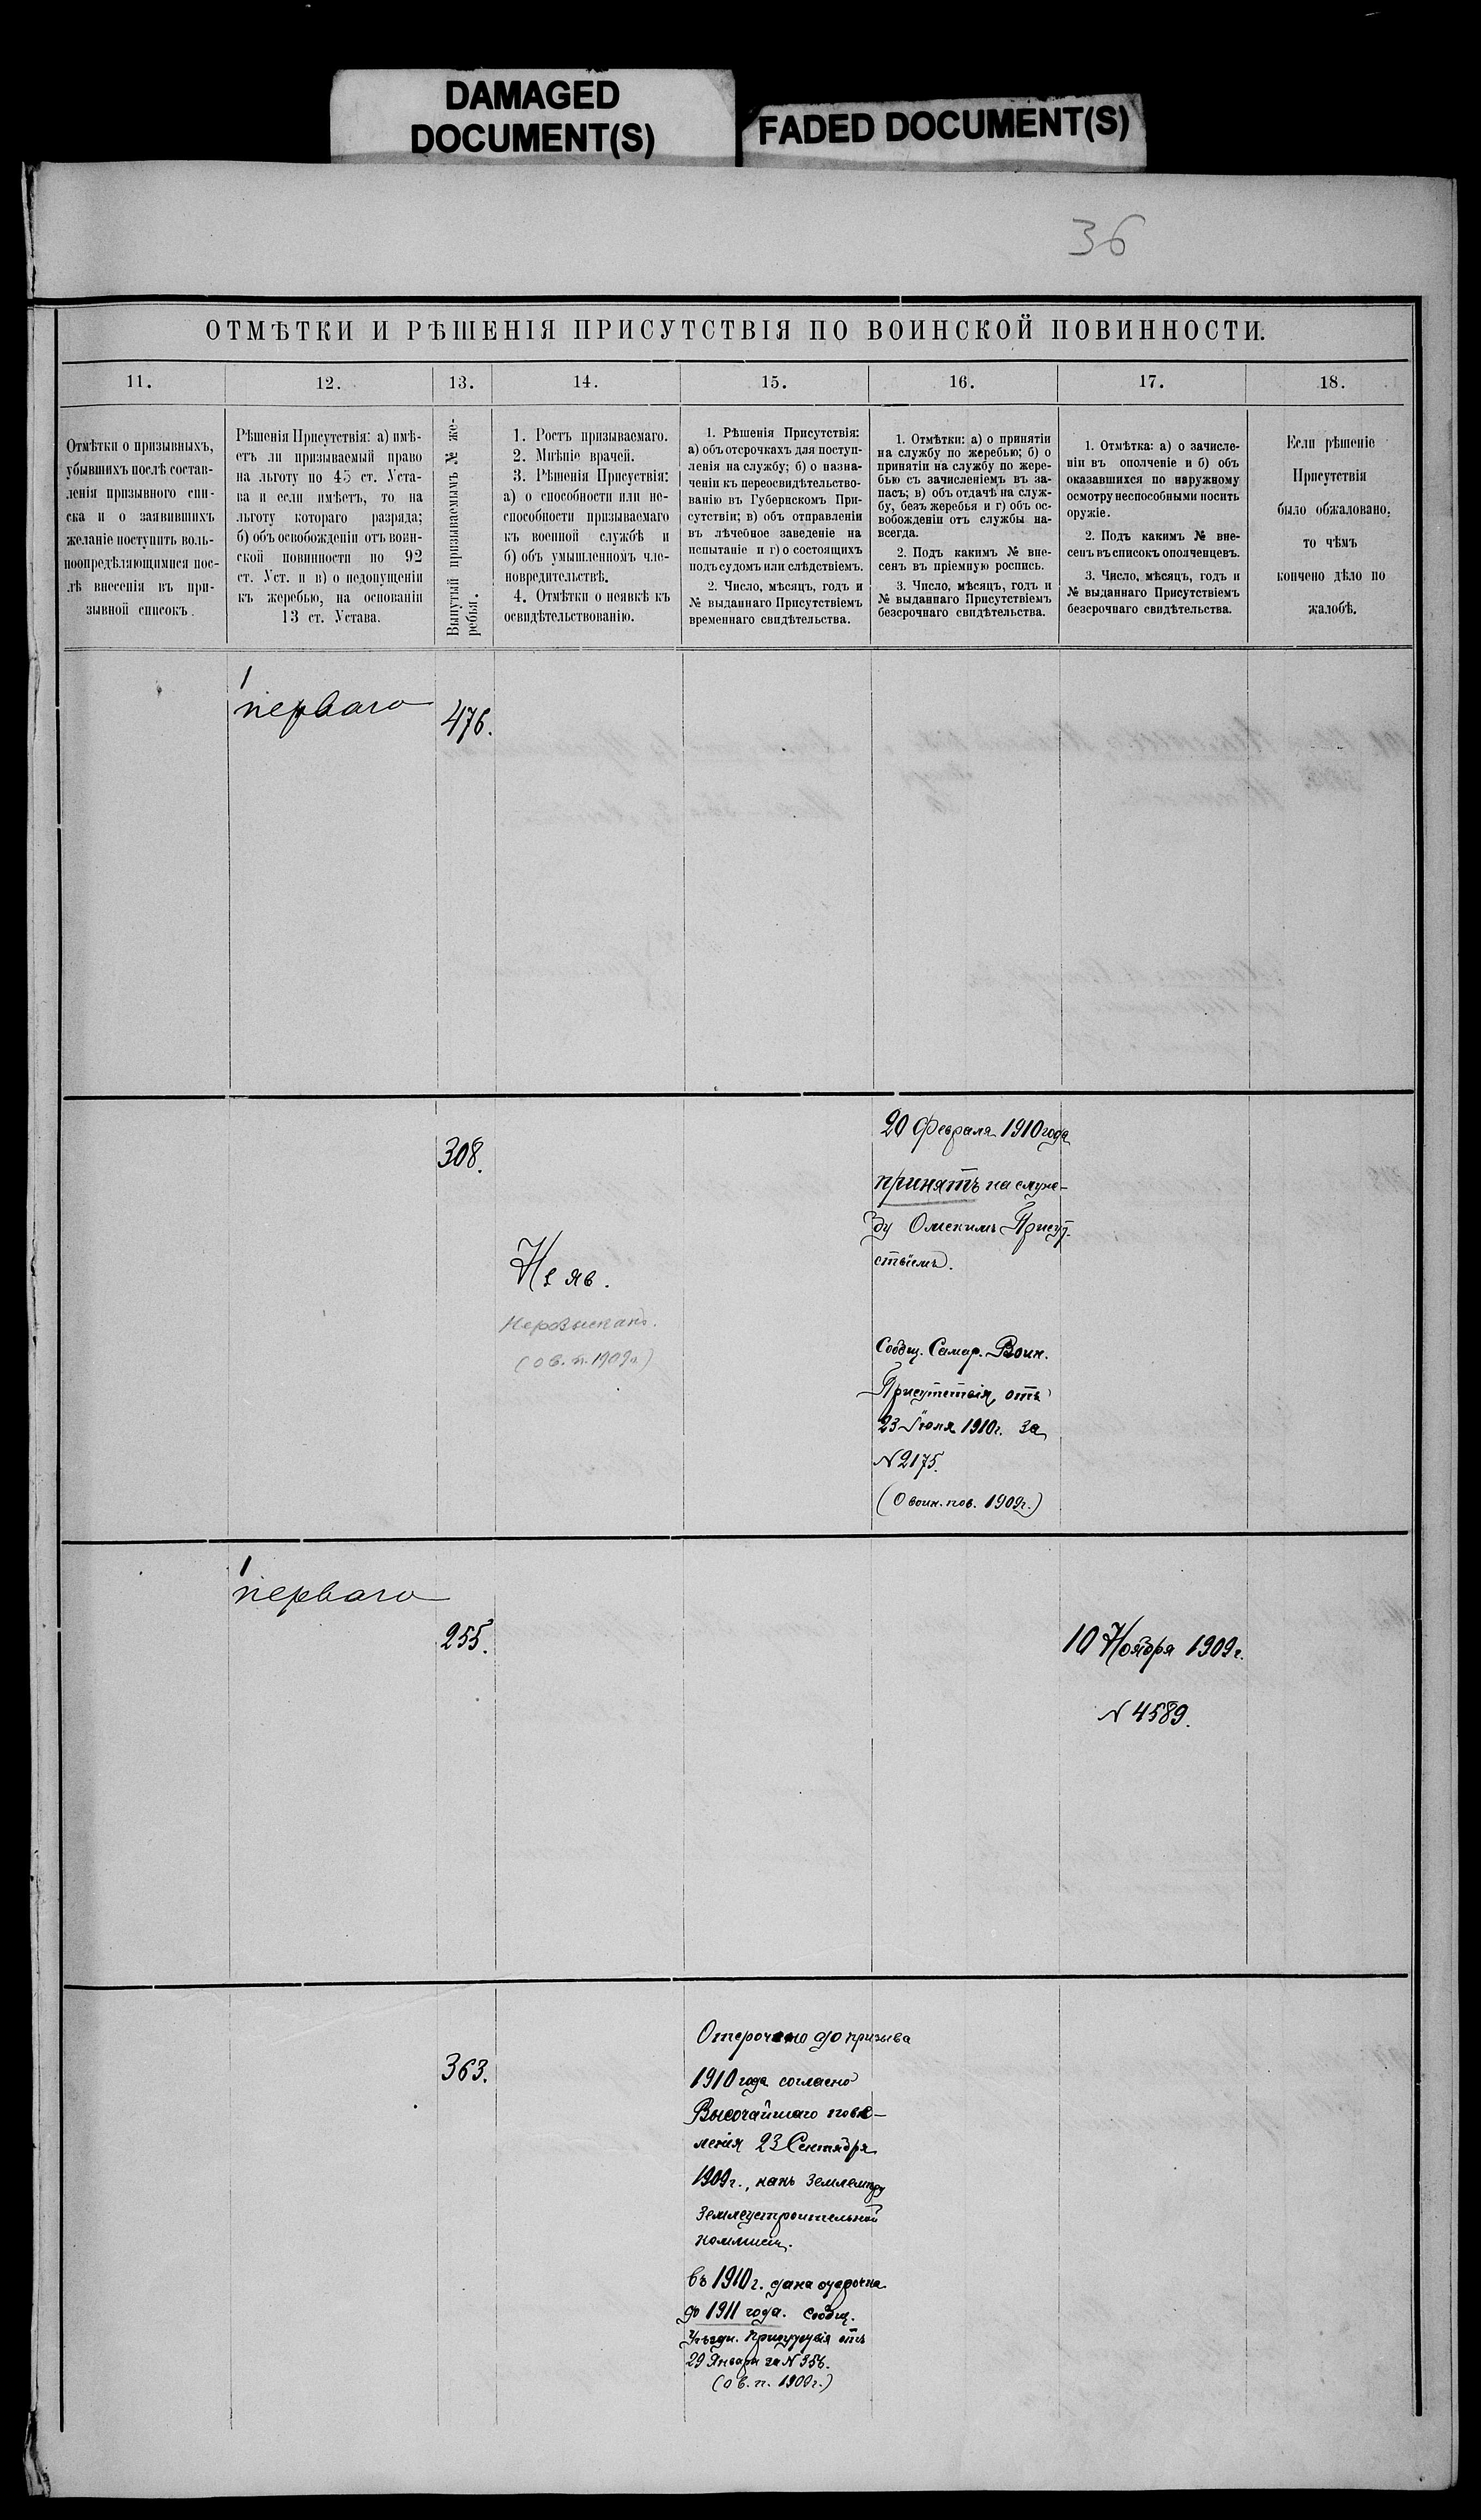 DAMAGED
DOCUMENT(S)
FADED DOCUMENT(S)
36
ОТМѢТКИ И РѢШЕНІЯ ПРИСУТСТВІЯ ПО ВОИНСКОЙ ПОВИННОСТИ.
11.
12.
13.
14.
15.
16.
17.
18.
Отмѣтки о призывныхъ,
убывшихъ послѣ состав-
ленія призывного спи-
ска и о заявившихъ
желаніе поступить воль-
ноопредѣляющимися пос-
лѣ внесенія въ при-
зывной списокъ.
Рѣшенія Присутствія: а) имѣ-
етъ ли призываемый право
на льготу по 45 ст. Уста-
ва и если имѣетъ, то на
льготу котораго разряда;
б) объ освобожденіи отъ воин-
ской повинности по 92
ст. Уст. и в) о недопущеніи
къ жеребью, на основаніи
13 ст. Устава.
Вынутый призываемымъ № же-
ребья.
1. Ростъ призываемаго.
2. Мнѣніе врачей.
3. Рѣшенія Присуствія:
а) о способности или не-
способности призываемаго
къ военной службѣ и
б) объ умышленномъ чле-
новредительствѣ.
4. Отмѣтки о неявкѣ къ
освидѣтельствованію.
1. Рѣшенія Присутствія:
а) объ отсрочкахъ для поступ-
ленія на службу; б) о назна-
ченіи къ переосвидѣтельство-
ванію въ Губернскомъ При-
сутствіи; в) объ отправленіи
въ лѣчебное заведеніе на
испытаніе и г) о состоящихъ
подъ судомъ или слѣдствіемъ.
2. Число, мѣсяцъ, годъ и
№ выданнаго Присутствіемъ
временнаго свидѣтельства.
1. Отмѣтки: а) о принятіи
на службу по жеребью; б) о
принятіи на службу по жере-
бью съ зачисленіемъ въ за-
пасъ; в) объ отдачѣ на служ-
бу, безъ жеребья и г) объ ос-
вобожденіи отъ службы на-
всегда.
2. Подъ какимъ № вне-
сенъ въ пріемную роспись.
3. Число, мѣсяцъ, годъ и
№ выданнаго Присутствіемъ
безсрочнаго свидѣтельства.
1. Отмѣтка: а) о зачисле-
ніи въ ополченіе и б) объ
оказавшихся по наружному
осмотру неспособными носить
оружіе.
2. Подъ какимъ № вне-
сенъ въ списокъ ополченцевъ.
3. Число, мѣсяцъ, годъ и
№ выданнаго Присутствіемъ
безсрочнаго свидѣтельства.
Если рѣшеніе
Присутствія
было обжаловано,
то чѣмъ
кончено дѣло по
жалобѣ.
1
перваго
476.
308.
Не яв.
(о в. п. 1909г.)
20 Февраля 1910 года
принятъ на служ-
бу Омскимъ Присут-
ствіемъ.
Сообщ. Самар. Воин.
Присутствія отъ
23 Іюля 1910г. за
№ 2175.
(О воин. пов. 1909г.)
1
перваго
255.
10 Ноября 1909г.
№ 4589.
363.
Отсрочено до призыва
1910 года согласно
Высочайшаго пове-
ленія 23 Сентября
1909г., какъ землемѣру
землеустроительной
коммисіи.
въ 1910г. дана отсрочка
до 1911 года. Сообщ.
Уѣздн. Присутствія отъ
29 Января за № 356.
(о в. п. 1909г.)